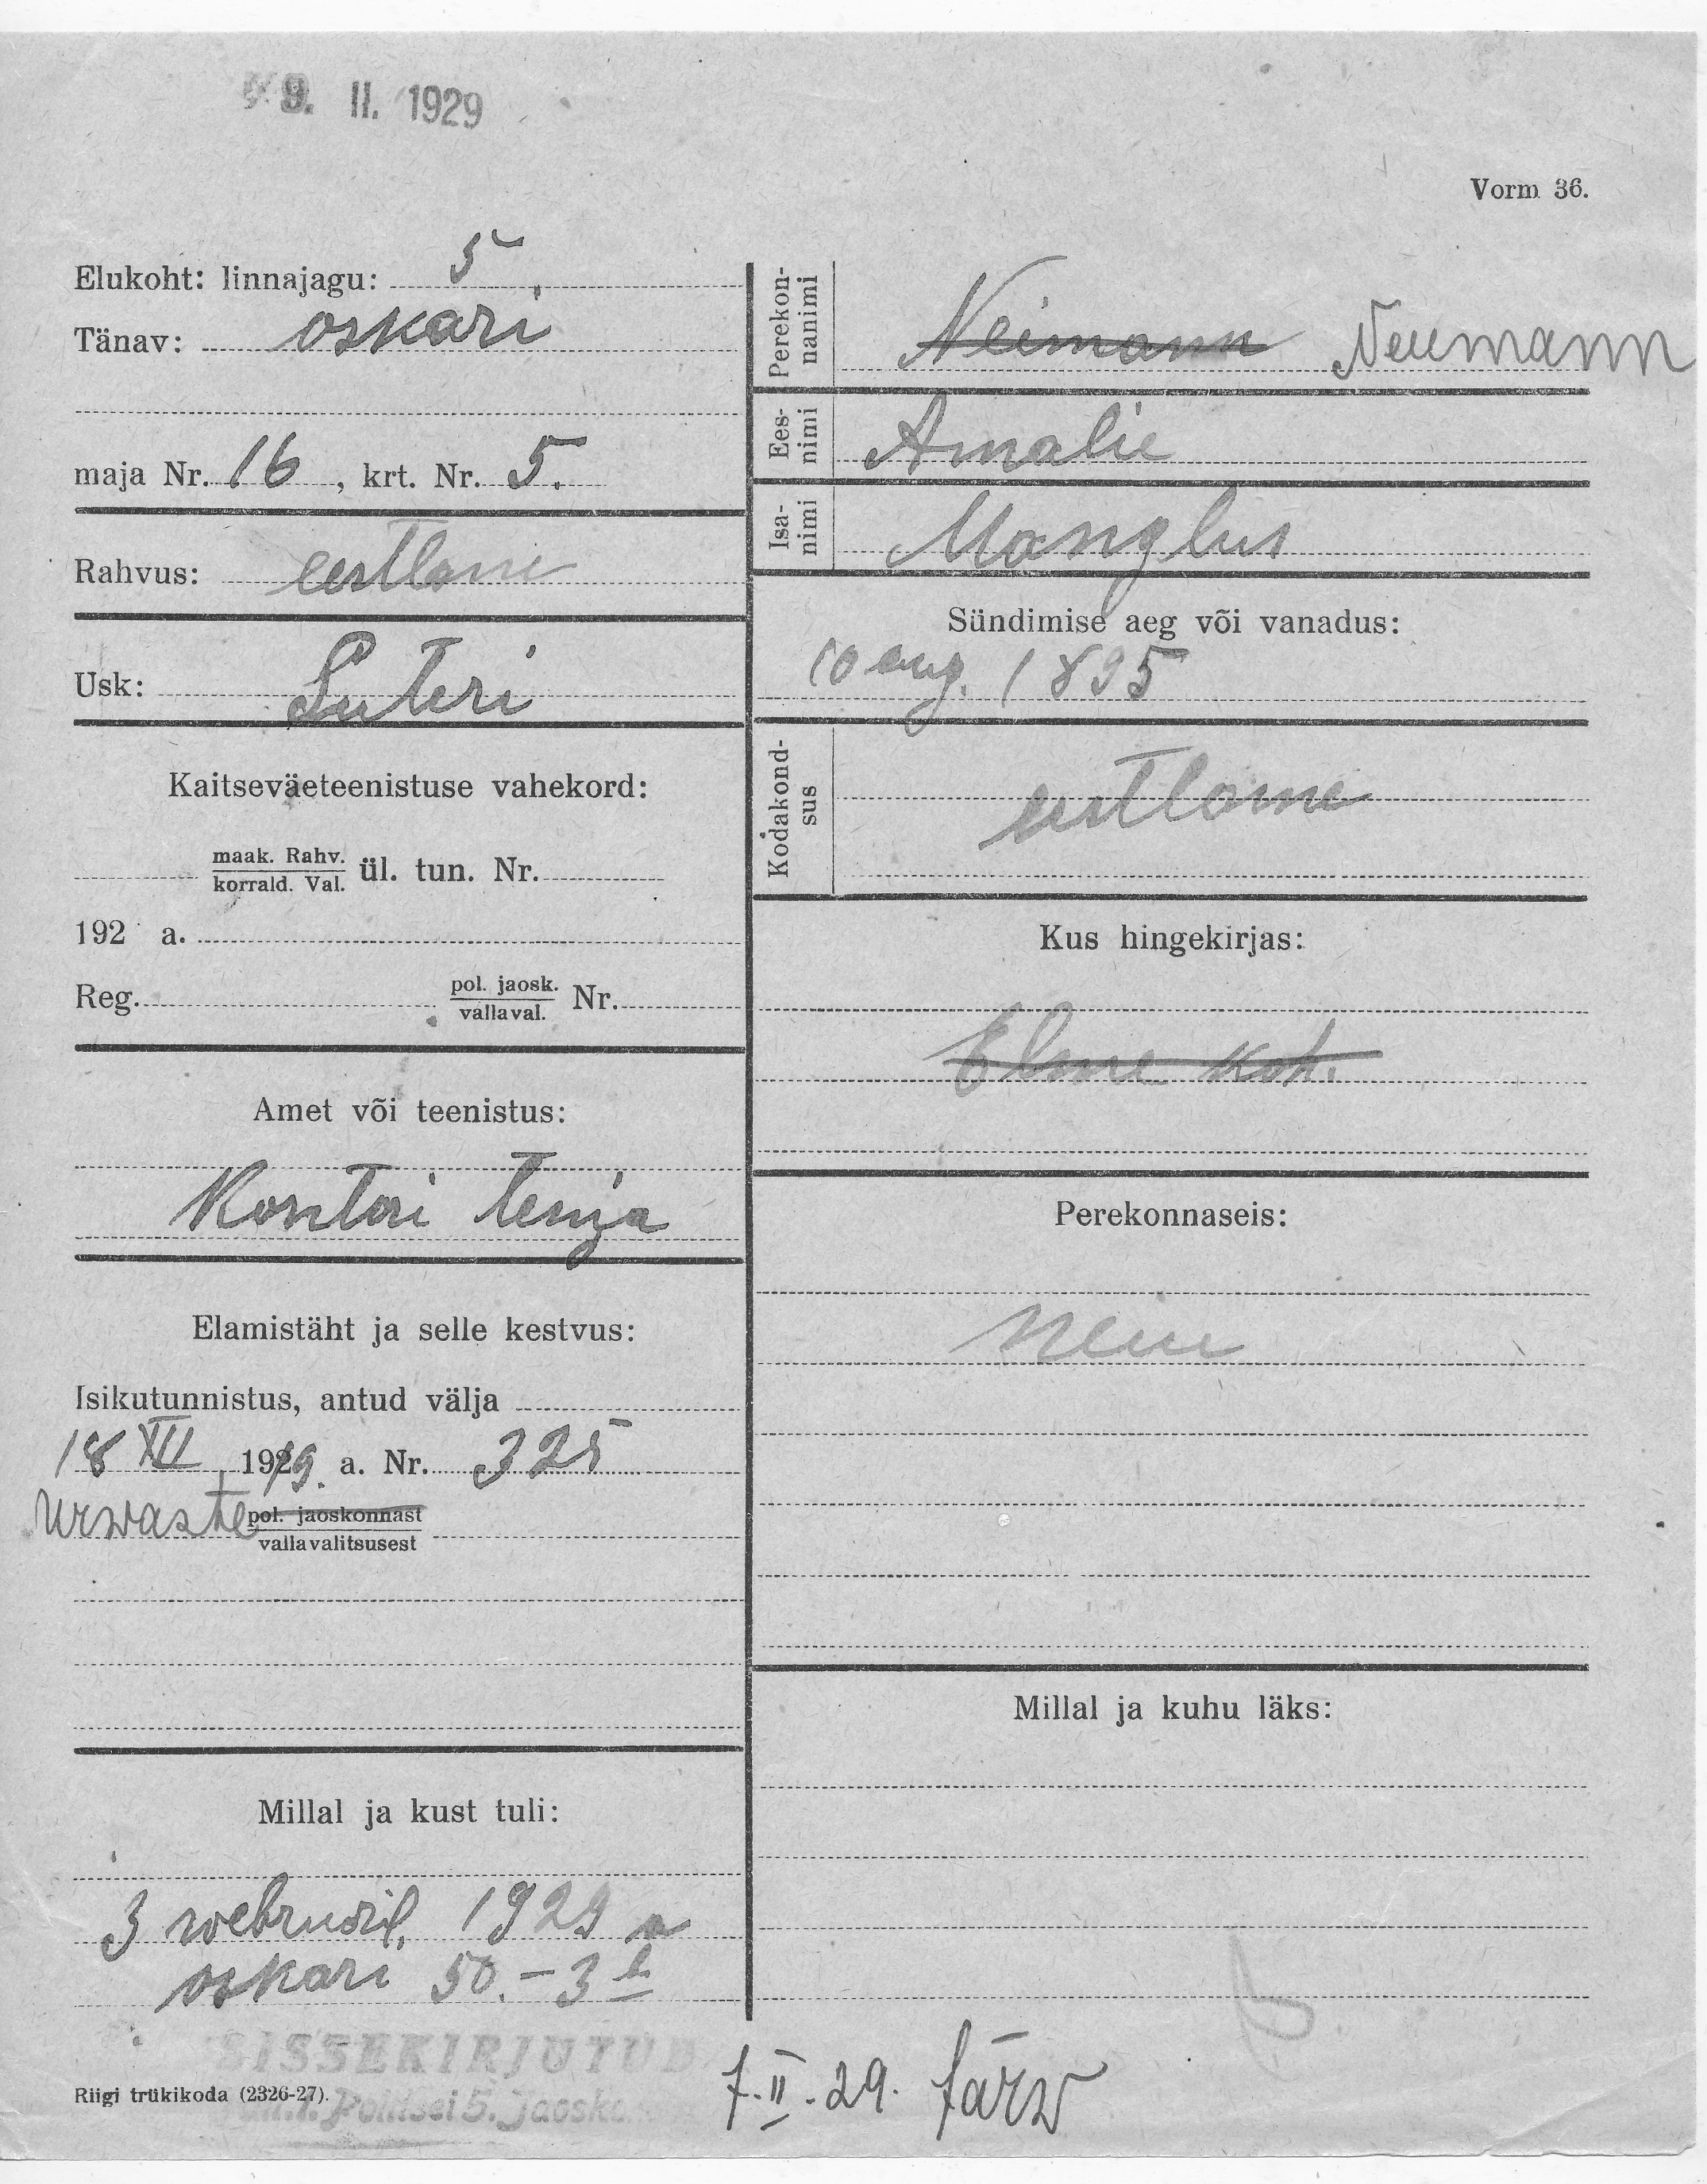 9. II. 1929
Vorm 36.
Elukoht: linnajagu: 5
Tänav: oskari
maja Nr. 16, krt. Nr. 5.
Rahvus: eestlane
Usk: Luteri
Kaitseväeteenistuse vahekord:
maak. Rahv.
korrald. Val.
ül. tun. Nr.
192 a.
Reg. pol. jaosk. Nr.
vallaval.
Amet või teenistus:
Kontori tenija
Elamistäht ja selle kestvus:
Isikutunnistus, antud välja
18 XII 1919. a. Nr. 325
Urvaste pol. jaoskonnast
vallavalitsusest
Millal ja kust tuli:
3 webruaril, 1929 a
oskari 50.-3
Perekon-
nanimi
Neimann Neumann
Ees-
nimi
Amalie
Isa-
nimi
Manglus
Sündimise aeg või vanadus:
10 aug. 1895
Kodakond-
sus
eestlane
Kus hingekirjas:
Perekonnaseis:
neiu
Millal ja kuhu läks:
SISSEKIRJUTUD
Politsei 5. Jaosk
Riigi trükikoda (2326-27).
7.II.29. Järw